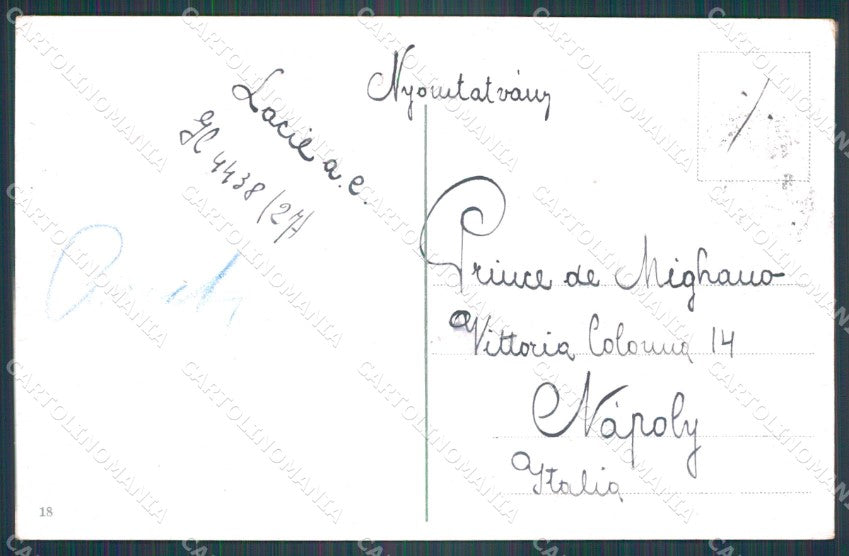 Nyomtatvány
Lacie a.c.
4438 (27)
Prince de Mignano
Vittoria Colonna 14
Nápoly
Italia
18
CARTOLINOMANIA